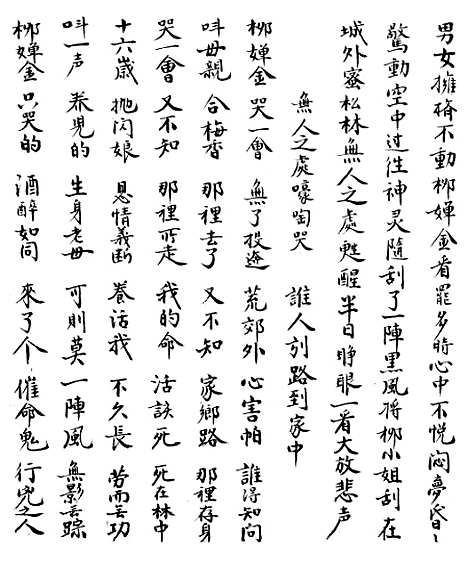 男女擁擠不動柳婵金看罷多時心中不悅悶夢民日〻
驚動空中过往神灵隨刮了一陣黑風將柳小姐刮在
城外蜜松林無人之處甦醒半日睁眼一看大放悲声
無人之處嚎啕哭 誰人引路到家中
柳婵金 哭一會 無了投逩 荒郊外 心害怕 誰得知问
呌毋親 合梅香 那裡去了 又不知 家鄉路 那裡存身
哭一會 又不知 那裡所走 我的命 活該死 死在林中
十六歲 抛闪娘 恩情義断 養活我 不久長 劳而无功
呌一声 养児的 生身老毋 可則莫 一陣風 無影无踪
柳婵金 只哭的 酒醉如同 來了个 催命鬼 行兇之人